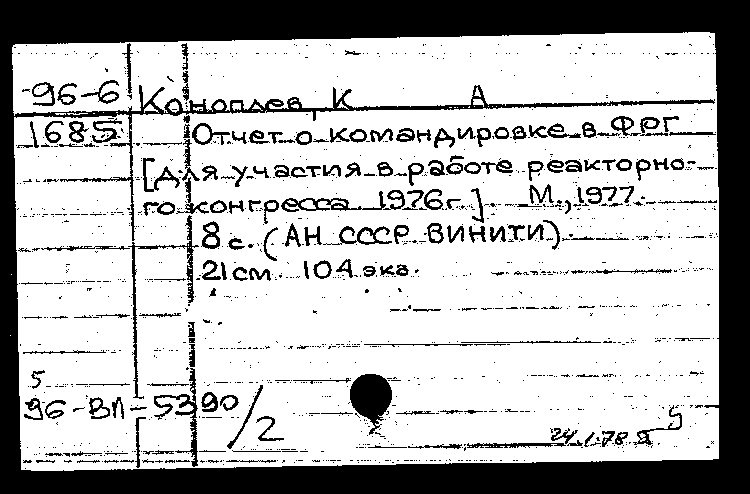 96-6 Коноплев, К А
1685 Отчет о командировке в ФРГ
[для участия в работе реакторно-
го конгресса. 1976г.]. М., 1977.
8 с. (АН СССР ВИНИТИ).
21см. 104 экз.
5
96-ВП-5390/2
24.1.78